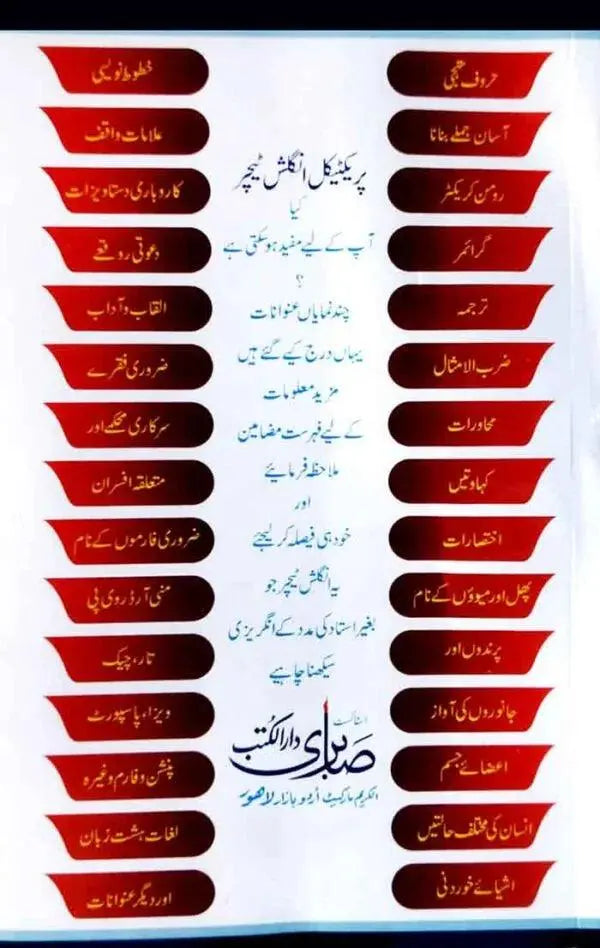 حروف تہجی
آسان جملے بنانا
رومن کریکٹر
گرائمر
ترجمہ
ضرب الامثال
محاورات
کہاوتیں
اختصارات
پھل اور میوؤں کے نام
پرندوں اور
جانوروں کی آواز
اعضائے جسم
انسان کی مختلف حالتیں
اشیائے خوردنی
پریکٹیکل انگلش ٹیچر
کیا
آپ کے لیے مفید ہو سکتی ہے
؟
چند نمایاں عنوانات
یہاں درج کیے گئے ہیں
مزید معلومات
کے لیے فہرست مضامین
ملاحظہ فرمائیے
اور
خود ہی فیصلہ کر لیجئے
یہ انگلش ٹیچر جو
بغیر استاد کی مدد کے انگریزی
سیکھنا چاہیے
اسٹاکسٹ
صابری دارالکتب
الکریم مارکیٹ اردو بازار لاہور
خطوط نویسی
علامات واقف
کاروباری دستاویزات
دعوتی رقعے
القاب و آداب
ضروری فقرے
سرکاری محکمے اور
متعلقہ افسران
ضروری فارموں کے نام
منی آرڈر وی پی
تار، چیک
ویزا، پاسپورٹ
پنشن و فارم وغیرہ
لغات ہشت زبان
اور دیگر عنوانات